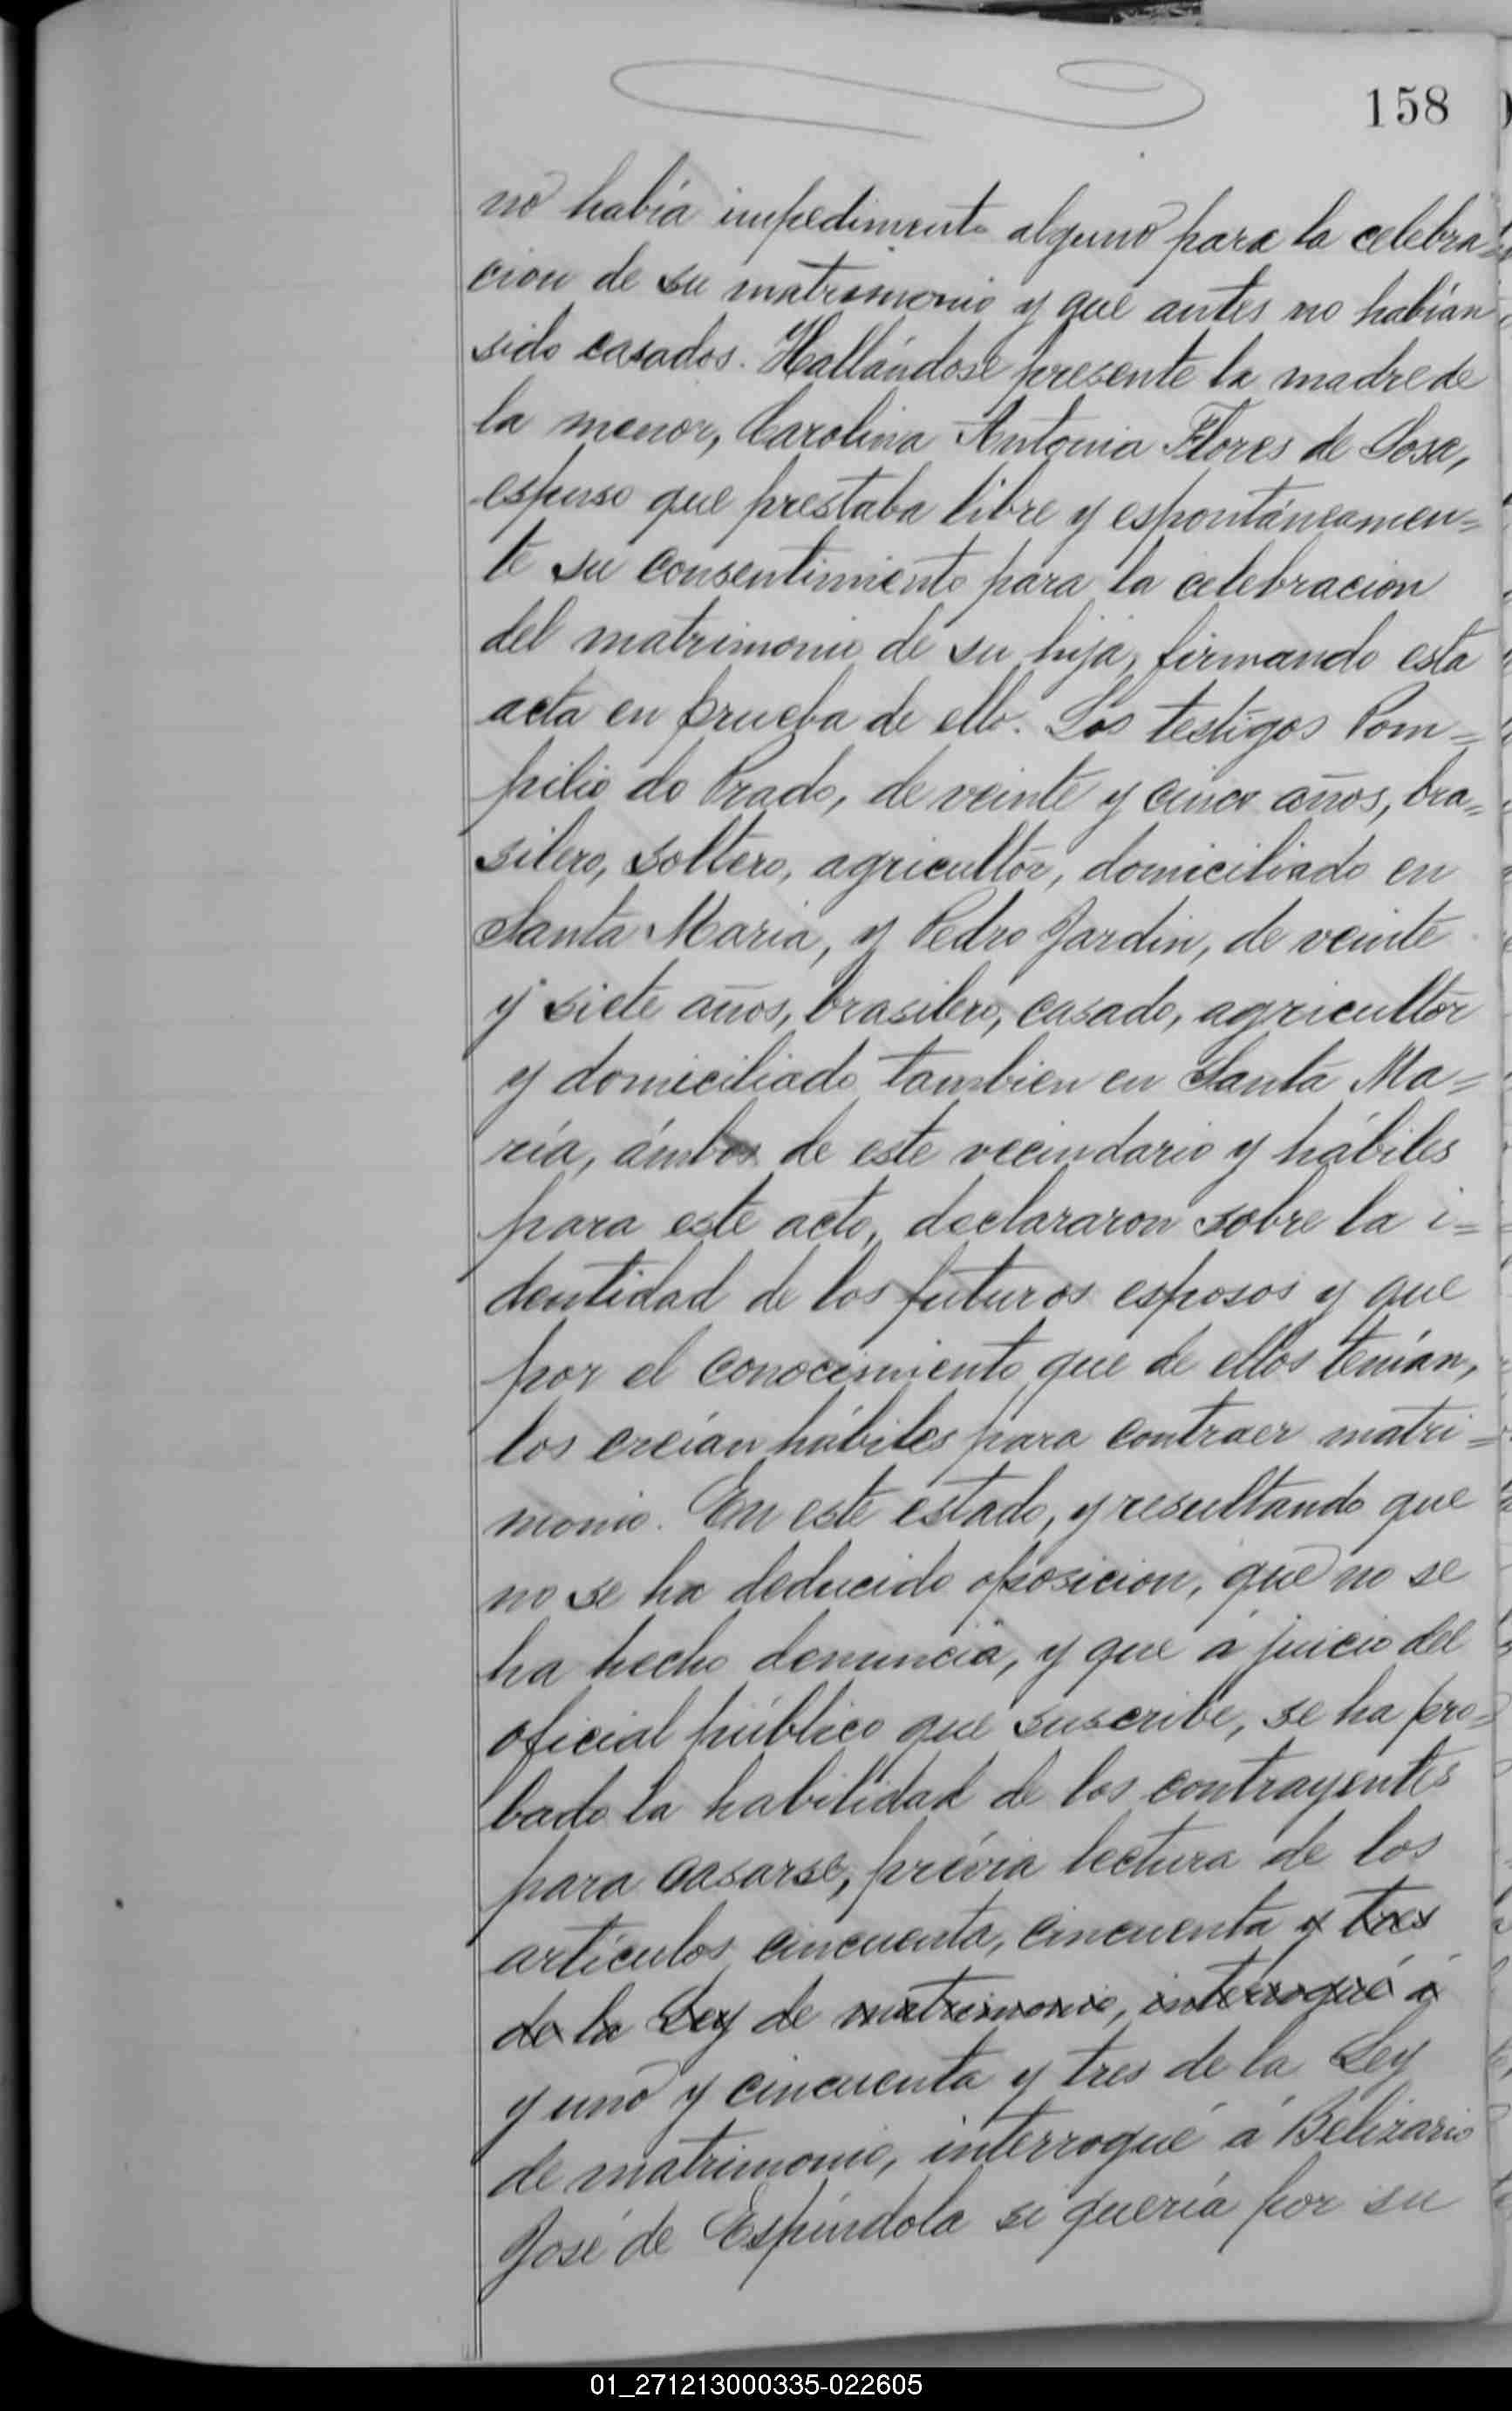 158
no había impedimento alguno para la celebra=
cion de su matrimonio y que antes no habían
sido casados. Hallándose presente la madre de
la menor, Carolina Antonia Flores de Sosa,
espuso que prestaba libre y espontáneamen=
te su consentimiento para la celebracion
del matrimonio de su hija, firmando esta
acta en prueba de ello. Los testigos Pom=
pilio do Prado, de veinte y cinco años, bra=
silero, soltero, agricultor, domiciliado en
Santa María, y Pedro Jardin, de veinte
y siete años, brasilero, casado, agricultor
y domiciliado tambien en Santa Ma=
ría, ámbos de este vecindario y hábiles
para este acto, declararon sobre la i=
dentidad de los futuros esposos y que
por el conocimiento que de ellos tenían,
los creían hábiles para contraer matri=
monio. En este estado, y resultando que
no se ha deducido oposicion, que no se
ha hecho denuncia, y que á juicio del
oficial público que suscribe, se ha pro=
bado la habilidad de los contrayentes
para casarse, prévia lectura de los
artículos cincuenta, cincuenta y tres
de la Ley de matrimonio, interrogué á
y uno y cincuenta y tres de la Ley
de matrimonio, interrogué á Belizario
José de Espíndola si quería por su
01_271213000335-022605